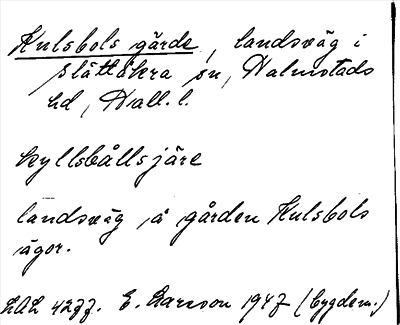 Hulsbols gärde, landsväg i
Slättåkra sn, Halmstads
hd, Hall. l.
hyllsbållsjäre
landsväg å gården Hulsbols
ägor.
LAL 4277. E. Larsson 1947 (bygdem.)